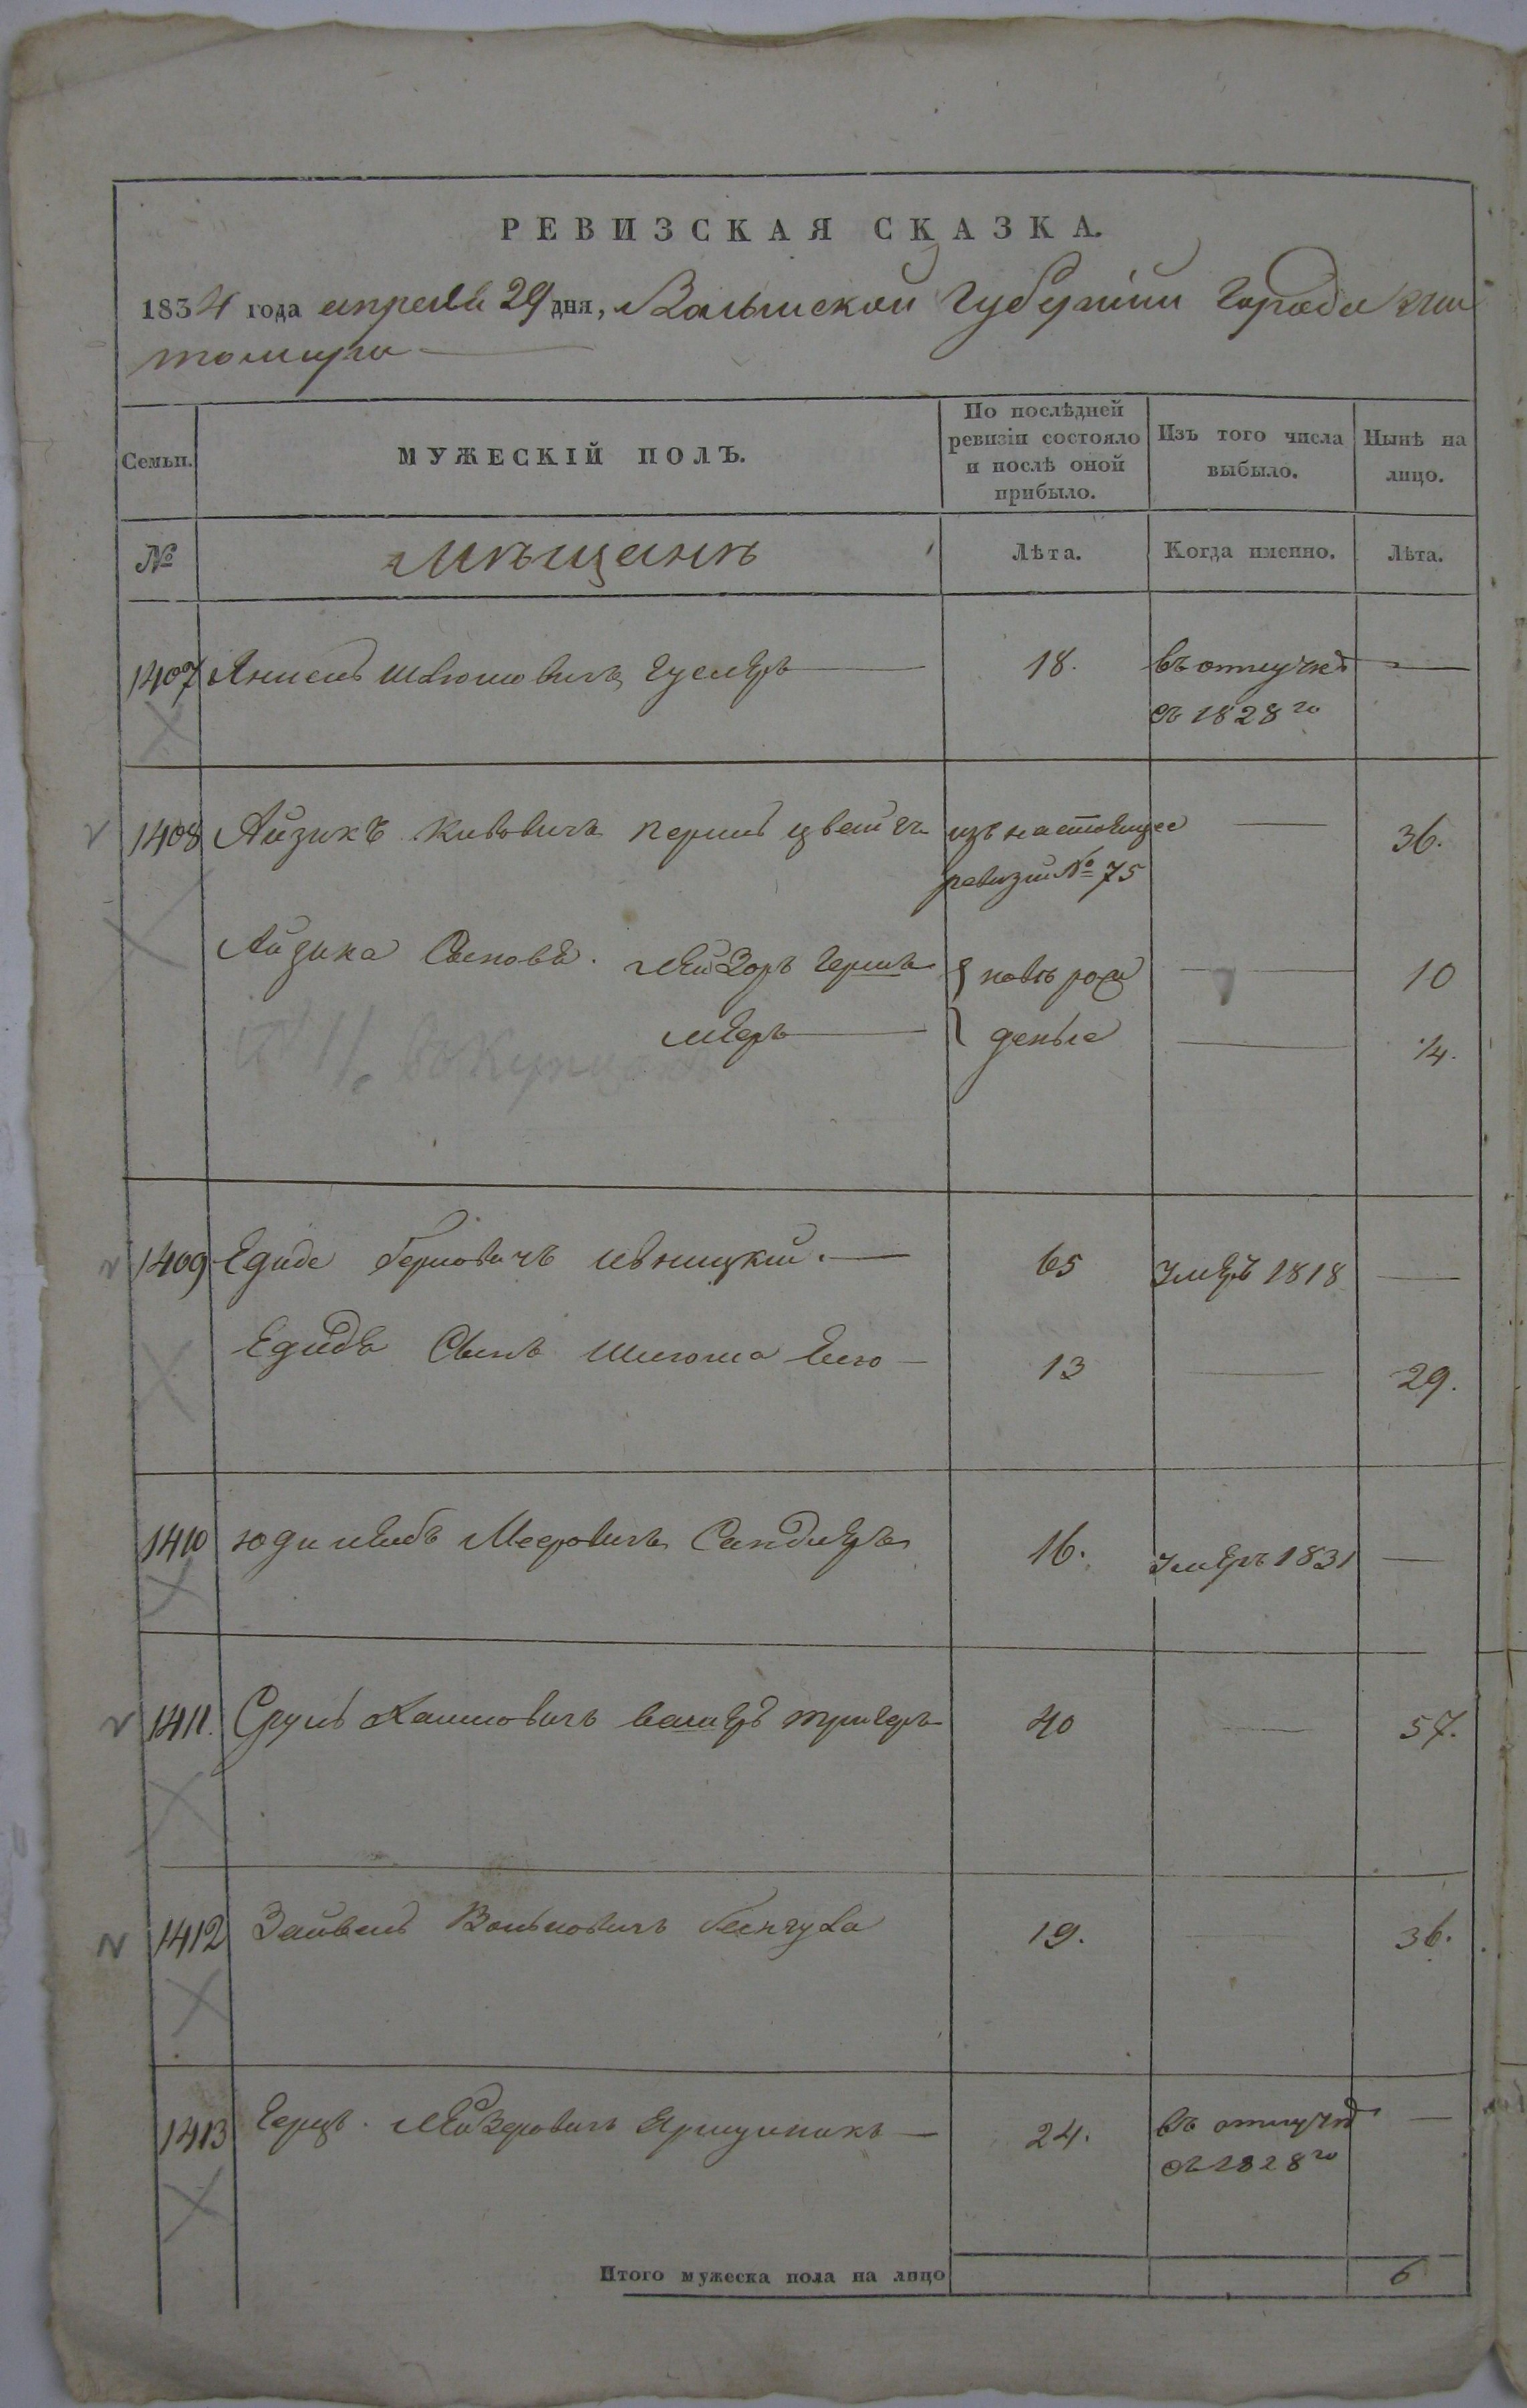 РЕВИЗСКАЯ СКАЗКА.
1834 года апреля 29 дня, Волынской Губернии Города Жи
томира
Семьи.
МУЖЕСКІЙ ПОЛЪ.
По послѣдней
ревизіи состояло
и послѣ оной
прибыло.
Изъ того числа
выбыло.
Нынѣ на
лицо.
№
Мѣщанѣ
Лѣта.
Когда именно.
Лѣта.
1407 Гуслеръ 18. въ отлучкѣ
съ 1828го
1408 Айзикъ Кивовичъ изъ настоящее 36.
ревизіи № 75
Айзика Сыновя. Лейзоръ Гершъ новъ рож 10
Мееръ денные 1/4.
во купцахъ
1409 Едиде Берковичъ 65 Умеръ 1818
Едида Сынъ Шлиома 13 29.
1410 Юди Лейбъ Мееровичъ Сандлеръ 16. Умеръ 1831
1411. Сруль Хаимовичъ Васеръ трегеръ 40 57.
1412 Зайвель Вольковичъ 19. 36.
1413 Герцъ. Лейзеровичъ 24. въ отлучкѣ
съ 1828го
Итого мужеска пола на лицо 6